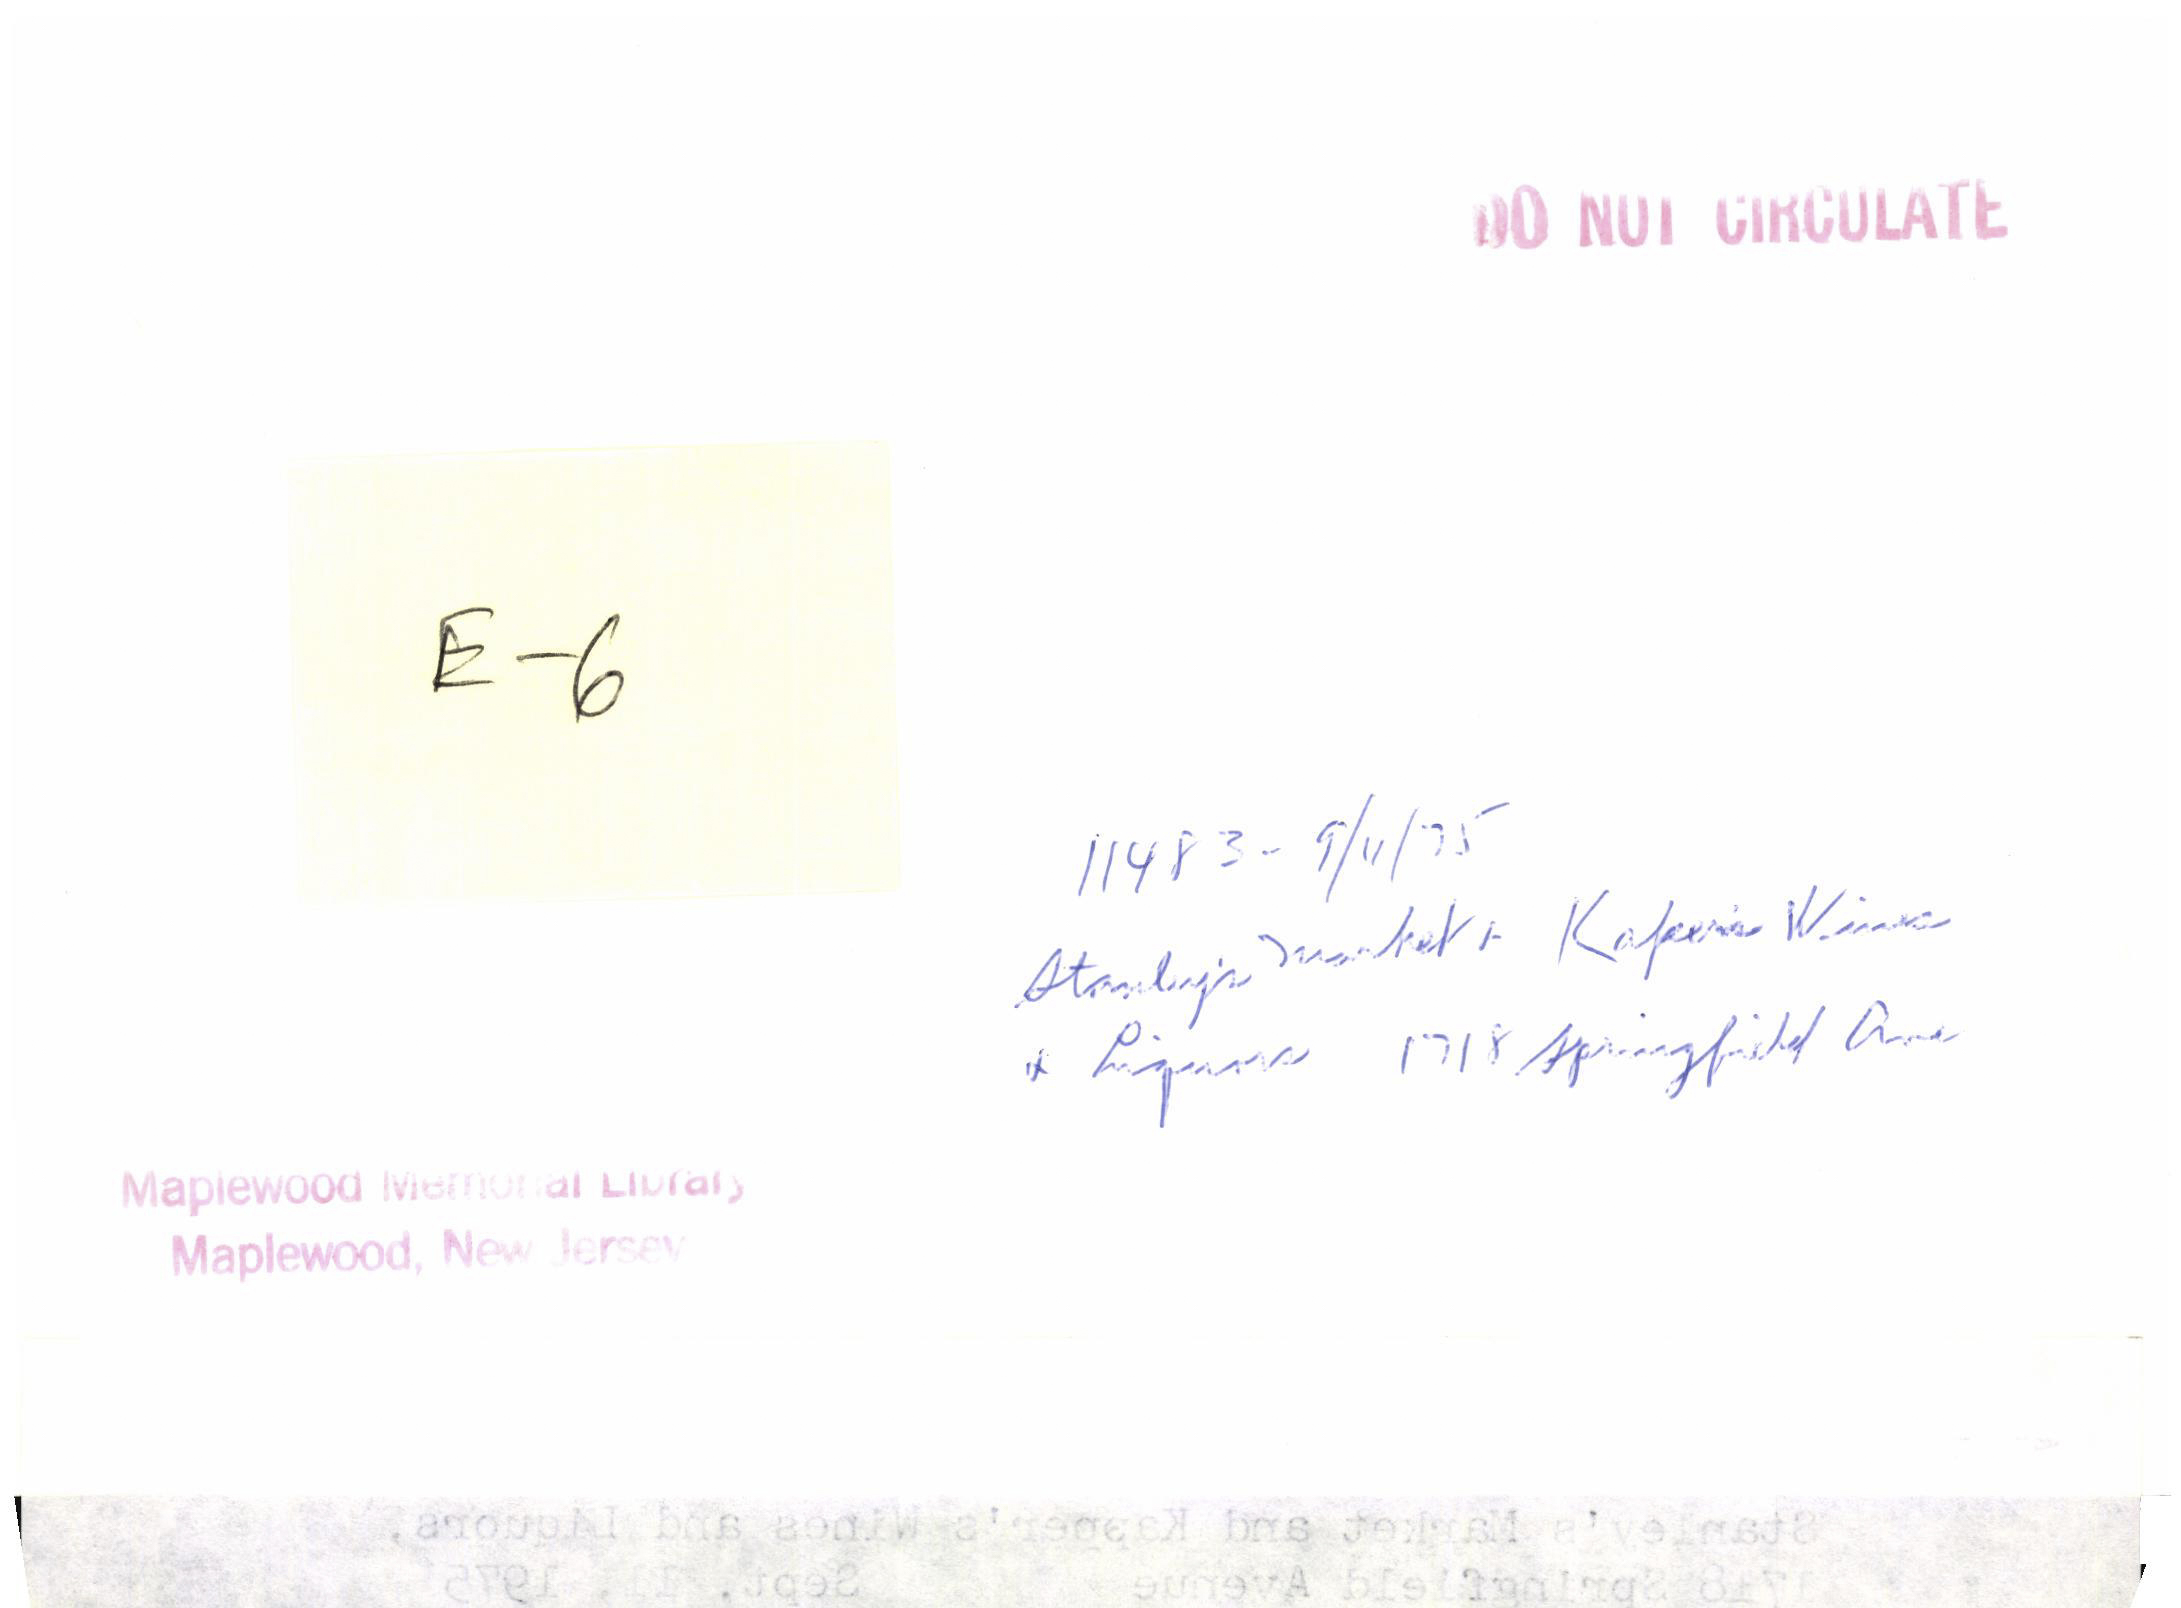 DO NOT CIRCULATE
E-6
11483- 9/11/75
Stanley's Market + Kaper's Wines
+ Liquors 1718 Springfield Ave
Maplewood Memorial Library
Maplewood, New Jersey
Stanley's Market and Kapper's Wines and Liquors,
1718 Springfield Avenue Sept. 11, 1975